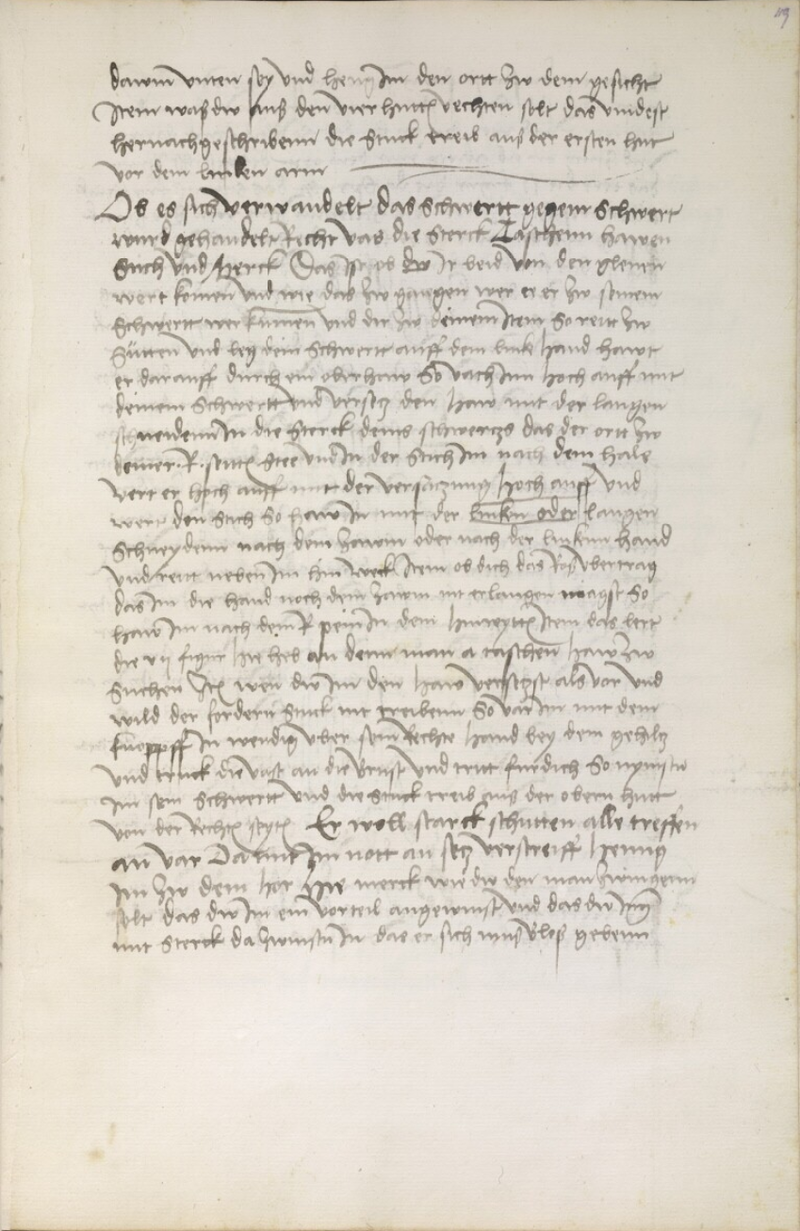 119
dawm vnten sey vnd heng Im den ortt zw dem gesicht
Item waß dw auß den vier hutten vechten solt das vindest
hernach geschribenn die stuck treib auß der ersten hut
vor dem lincken arm
Ob es sich verwandelt das schwertt gegem schwert
wurd gehandelt Recht vas die sterck Taschenn hawen
Such vnd Merck Das ist ob dw Ir beid von den glenen
wert komen vnd wie das zw gangen wer ee er zw seinem
Schwertt wer kumen vnd dw zw deinem Item So reitt zw
Sütten vnd leg dein schwertt auff dem linck hand hawt
er darauff durch ein oberhaw So vach Inn hoch auff mit
deinem schwertt vnd versetz den haw mit der langen
schneidenn In die sterck deins schwerczs das der ortt zw
deiner R seitten stee vnd In der stich Im nach dem hals
wert er hoch auff mit der versaczung hoch auff vnd
wert den stich So haw In mit der lincken oder langen
Schneydenn nach dem zawm oder nach der linckenn hand
vnd reitt neben Im hin weck Item ob dich das roß vbertrag
das Im die hand noch dem zawm nit erlangen magst So
haw Im nach dem R pein In dem hinreytten Item das lert
die vii figur hie heb an denn man a taschenn haw zw
Suchen Item wen dw Im den haw versetzst als vor vnd
wild der fordern stuck nit treibenn So var Im mit dem
knopff In wendig vber sein Rechte hand bey dem gehiltz
vnd truck die vast an die brust vnd reitt fur dich So nymstw
Im sein schwertt vnd die stuck treib auß der obern hutt
von der rechten seyten Er woll starck schutten alle treffen
an var Darmit Im nott an setz verstreiff heng
Im zw dem hor Hie merck wie dw den man zwingenn
solt das dw Im ein vorteil angewinst vnd das dw Inn
mit sterck da zwinstu In das er sich muß bloß gebenn